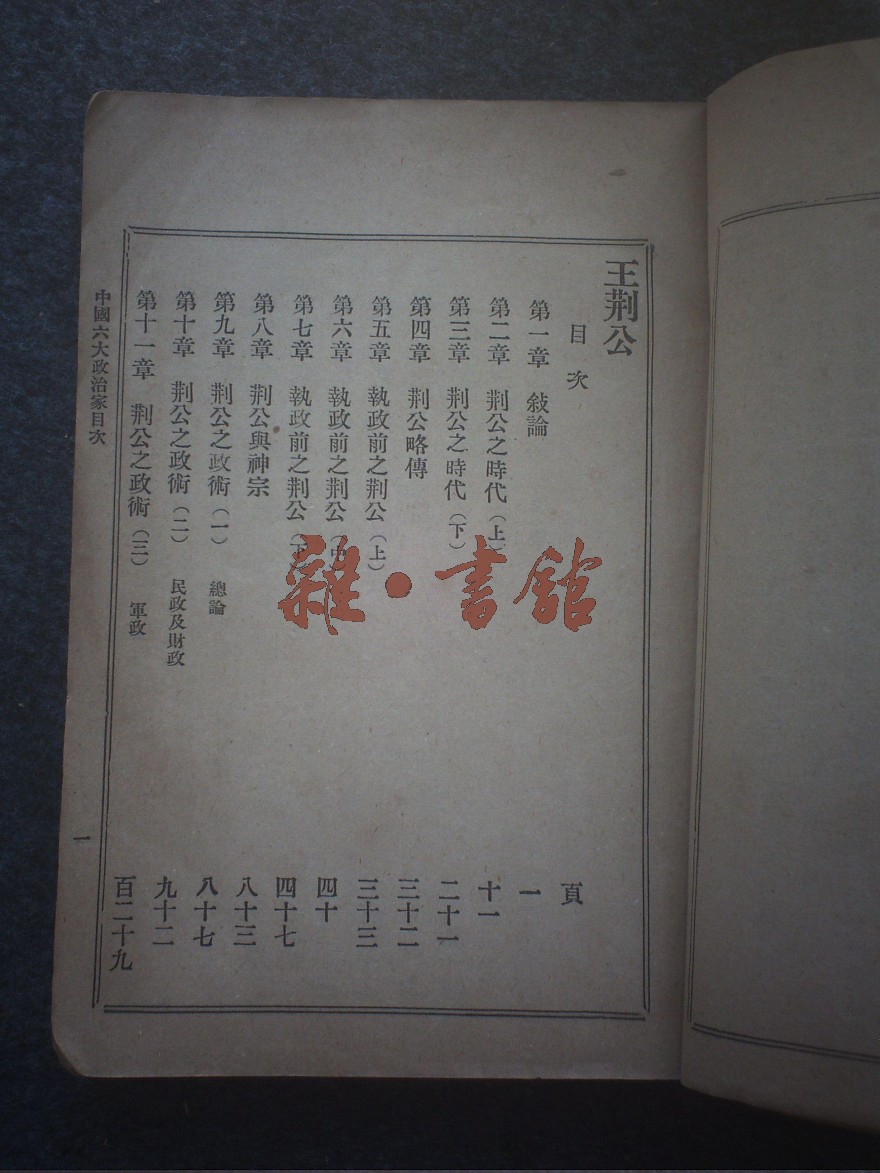 王荆公
目次
頁
第一章 敍論 一
第二章 荆公之時代（上） 十一
第三章 荆公之時代（下） 二十一
第四章 荆公略傳 三十二
第五章 執政前之荆公（上） 三十三
第六章 執政前之荆公（中） 四十
第七章 執政前之荆公（下） 四十七
第八章 荆公與神宗 八十三
第九章 荆公之政術（一） 總論 八十七
第十章 荆公之政術（二） 民政及財政 九十二
第十一章 荆公之政術（三） 軍政 百二十九
中國六大政治家目次
一
雜·書館